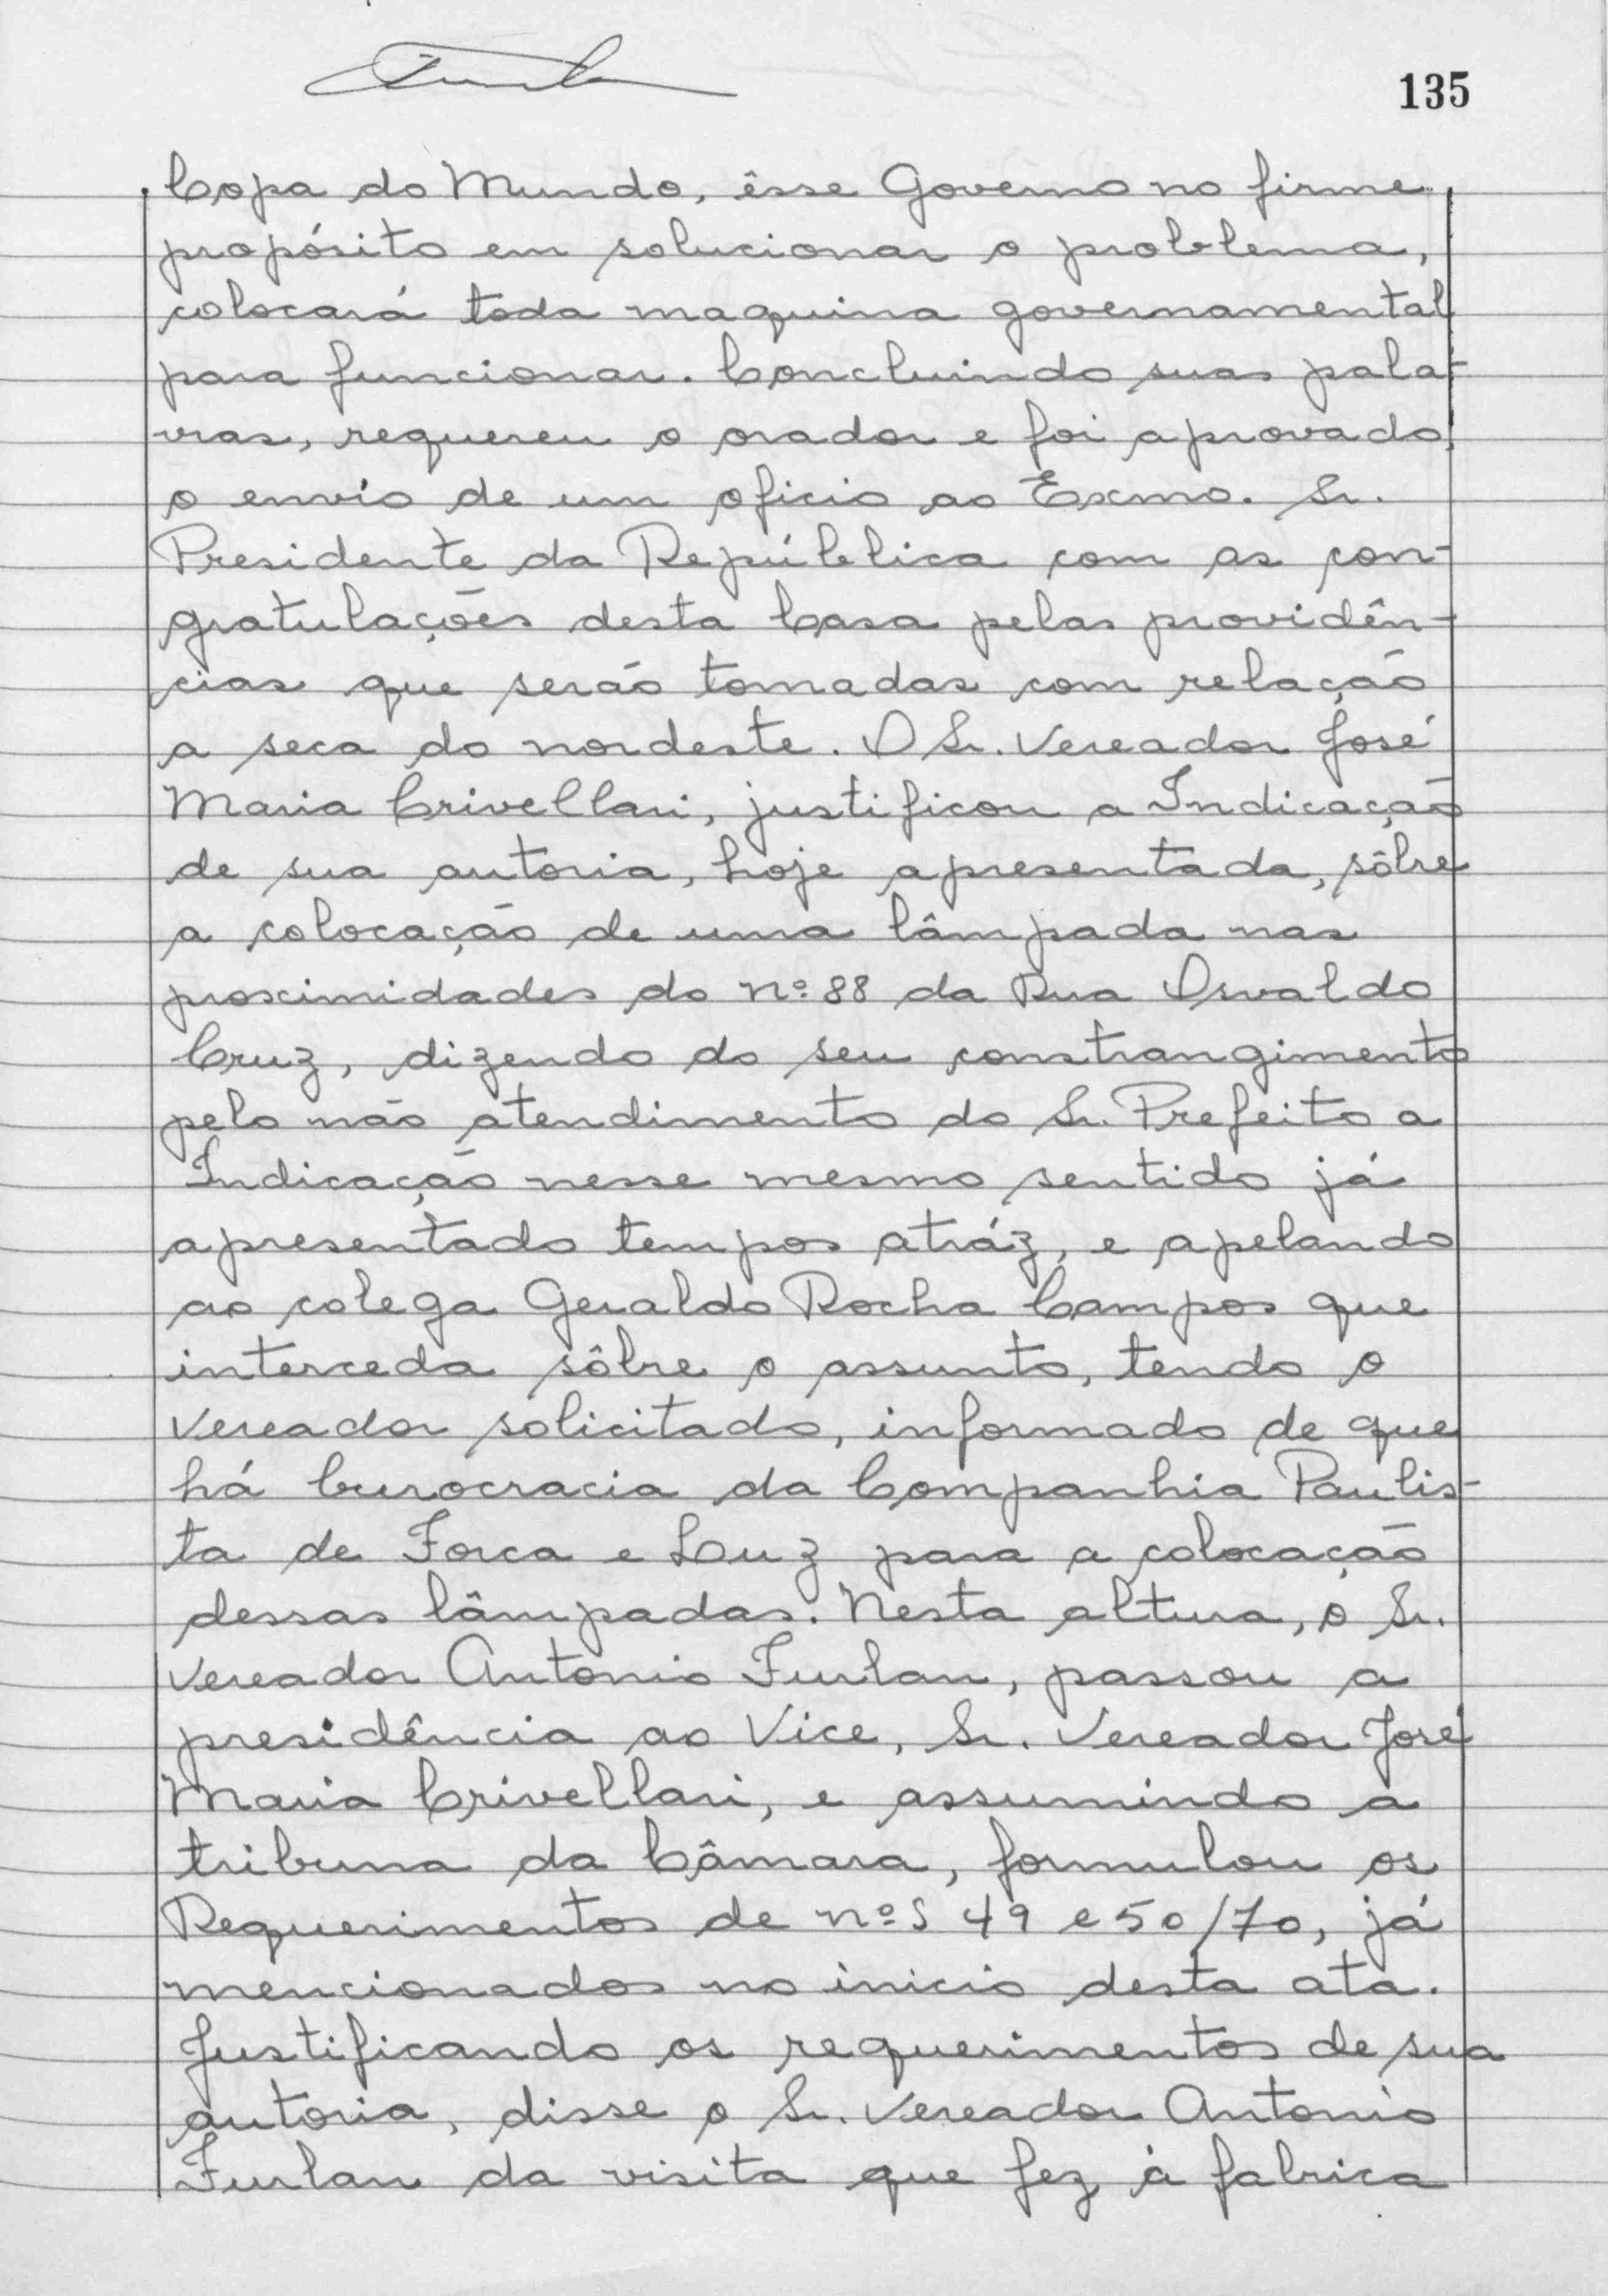 135
Copa do Mundo, êsse Governo no firme
propósito em solucionar o problema,
colocará toda maquina governamental
para funcionar. Concluindo suas pala-
vras, requereu o orador e foi aprovado,
o envio de um oficio ao Exmo. Sr.
Presidente da República com as con-
gratulações desta Casa pelas providên-
cias que serão tomadas com relação
a seca do nordeste. O Sr. Vereador José
Maria Crivellari, justificou a Indicação
de sua autoria, hoje apresentada, sôbre
a colocação de uma lâmpada nas
proximidades do nº 88 da Rua Osvaldo
Cruz, dizendo do seu constrangimento
pelo não atendimento do Sr. Prefeito a
Indicação nesse mesmo sentido já
apresentado tempos atráz, e apelando
ao colega Geraldo Rocha Campos que
interceda sôbre o assunto, tendo o
Vereador solicitado, informado de que
há burocracia da Companhia Paulis-
ta de Forca e Luz para a colocação
dessas lâmpadas. Nesta altura, o Sr.
Vereador Antonio Furlan, passou a
presidência ao Vice, Sr. Vereador José
Maria Crivellari, e assumindo a
tribuna da Câmara, formulou os
Requerimentos de nºs 49 e 50/70, já
mencionados no inicio desta ata.
Justificando os requerimentos de sua
autoria, disse o Sr. Vereador Antonio
Furlan da visita que fez à fabrica